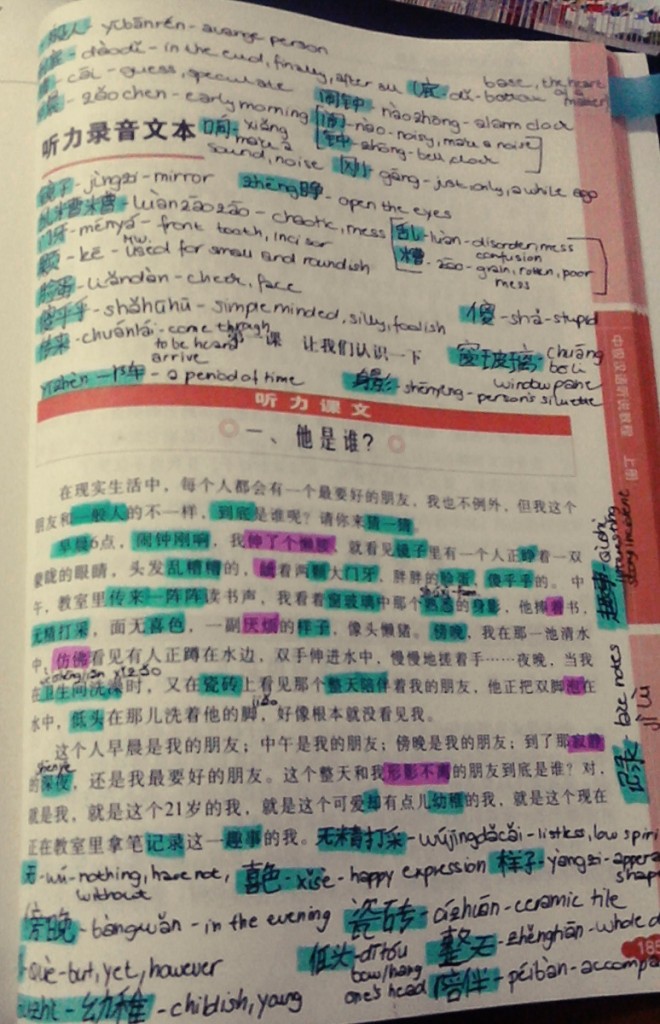 般人 - yìbānrén - average person
dàodǐ - in the end, finally, after all (底 - dǐ - bottom base, the heart of a matter)
cāi - guess, speculate
晨 - zǎochen - early morning
闹钟 - nàozhōng - alarm clock
闹 - nào - noisy, make a noise
钟 - zhōng - bell, clock
听力录音文本
响 - xiǎng make a sound, noise
刚 - gāng - just, only, a while ago
镜子 - jìngzi - mirror
zhēng 睁 - open the eyes
乱糟糟 - luànzāozāo - chaotic, mess
乱 - luàn - disorder, mess confusion
糟 - zāo - grain, rotten, poor mess
门牙 - ményá - front tooth, incisor
颗 - kē - MW. used for small and roundish
脸蛋 - liǎndàn - cheek, face
傻乎乎 - shǎhūhū - simpleminded, silly, foolish
傻 - shǎ - stupid
传来 - chuánlái - come through to be heard arrive
课 让我们认识一下
窗玻璃 - chuāng bōli windowpane
yízhèn 一阵 - a period of time
身影 - shēnyǐng - person's silhouette
中级汉语听说教程 上册
听力课文
一、他是谁?
在现实生活中,每个人都会有一个最要好的朋友,我也不例外,但我这个
朋友和一般人的不一样,到底是谁呢?请你来猜一猜。
早晨6点,闹钟刚响,我伸了个懒腰,就看见镜子里有一个人正睁着一双
朦胧的眼睛,头发乱糟糟的,龇着两颗大门牙,胖胖的脸蛋,傻乎乎的。中
午,教室里传来一阵阵读书声,我看着窗玻璃中那个熟悉的身影,他捧着书,
无精打采,面无喜色,一副厌烦的样子,像头懒猪。傍晚,我在那一池清水
中,仿佛看见有人正蹲在水边,双手伸进水中,慢慢地搓着手……夜晚,当我
在卫生间洗澡时,又在瓷砖上看见那个整天陪伴着我的朋友,他正把双脚泡在
水中,低头在那儿洗着他的脚,好像根本就没看见我。
这个人早晨是我的朋友;中午是我的朋友;傍晚是我的朋友;到了那寂静
的深夜,还是我最要好的朋友。这个整天和我形影不离的朋友到底是谁?对,
就是我,就是这个21岁的我,就是这个可爱却有点儿幼稚的我,就是这个现在
正在教室里拿笔记录这一趣事的我。
shēnyè
jiǎo
趣事 qùshì interesting story/incident
记录 jìlù take notes
无精打采 - wújīngdǎcǎi - listless, low spiri
无 - wú - nothing, have not, without
喜色 - xǐsè - happy expression
样子 - yàngzi - appera shape
傍晚 - bàngwǎn - in the evening
瓷砖 - cízhuān - ceramic tile
低头 - dītóu bow/hang one's head
整天 - zhěngtiān - whole d
què - but, yet, however
陪伴 - péibàn - accompa
幼稚 - childish, young
185